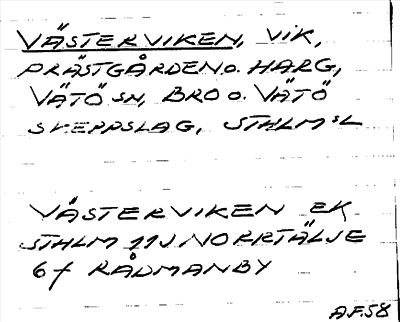 VÄSTERVIKEN, VIK,
PRÄSTGÅRDEN o. HARG,
VÄTÖ SN, BRO o. VÄTÖ
SKEPPSLAG, STHLMS L
VÄSTERVIKEN EK
STHLM 11J NORRTÄLJE
6f RÅDMANBY
A.F. 58